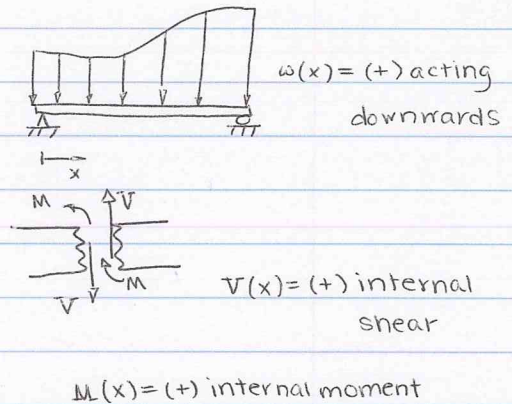 ω(x) = (+) acting
downwards
x
M
V
V
M
V(x) = (+) internal
shear
M(x) = (+) internal moment